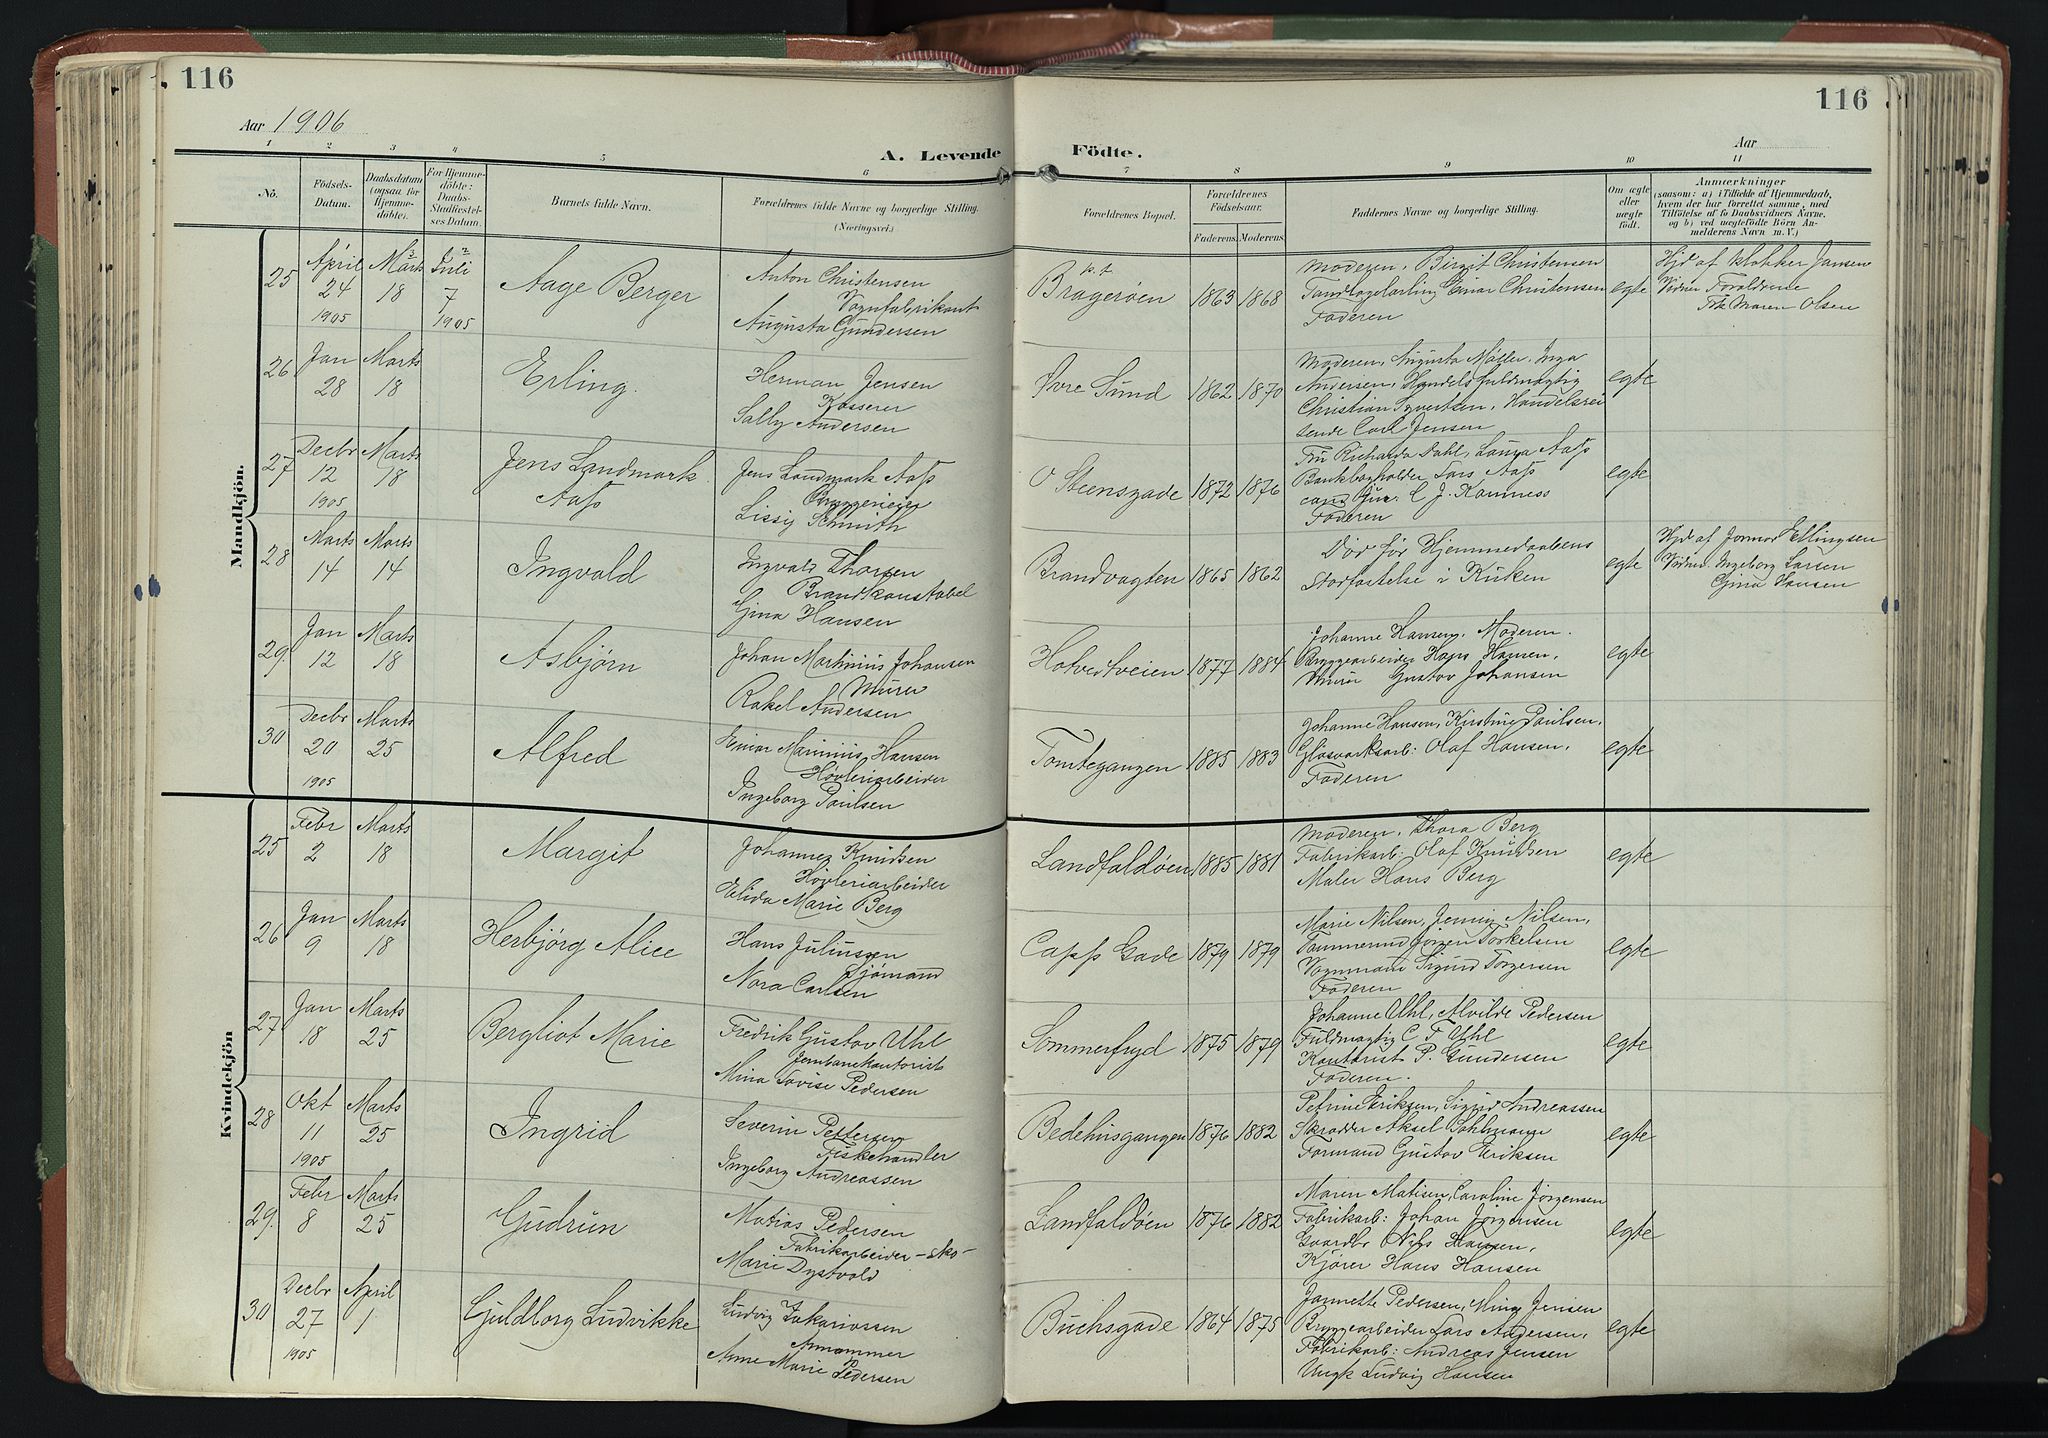 116
116
Aar 1906
Aar
A. Levende Födte.
1 2 3 4 5 6 7 8 9 10 11
No.
Födsels-Datum.
Daabsdatum (ogsaa for Hjemmedöbte).
For Hjemmedöbte: Daabs-Stadfæstelses Datum.
Barnets fulde Navn.
Forældrenes fulde Navne og borgerlige Stilling. (Næringsvei.)
Forældrenes Bopæl.
Forældrenes Födselsaar.
Faderens. Moderens.
Faddernes Navne og borgerlige Stilling.
Om ægte eller uægte født.
Anmærkninger
(saasom: a) i Tilfælde af Hjemmedaab,
hvem der har forrettet samme, med
Tilföielse af to Daabsvidners Navne.
og b) ved uægtefödte Börn An-
melderens Navn m. V.)
Mandkjön.
25
April 24 1905
Marts 18
Juli 7 1905
Aage Berger
Anton Christensen
Vognfabrikant
Augusta Gundersen
p.t.
Bragerøen
1863 1868
Moderen, Birgit Christensen
Tandlægelærling Einar Christensen
Faderen
egte
Hjd af Klokker Jansen
Vidner Forældrene
Maren Olsen
26
Jan 28
Marts 18
Erling.
Herman Jensen
Kasserer
Sally Andersen
Øvre Sund
1862 1870
Moderen, Augusta Møller, Inga
Andersen, Handelsfuldmægtig
Christian Syvertsen, Handelsrei
sende Carl Jensen
egte
27
Decbr 12 1905
Marts 18
Jens Landmark
Aass
Jens Landmark Aass
Bryggerieier
Lissy Schmith
O Steensgade
1872 1876
Fru Richarda Dahl, Laura Aass
Bankbogholder Lars Aass
cand jur. C J. Kamness
Faderen
egte
28
Marts 14
Marts 14
Ingvald
Ingvald Thorsen
Brandkonstabel
Gina Hansen
Brandvagten
1865 1862
Død før Hjemmedaabens
Stadfæstelse i Kirken
egte
Hjd af Jormor Ellingsen
Vidner. Ingeborg Larsen
Gina Hansen
29.
Jan 12
Marts 18
Asbjørn
Johan Martinius Johansen
Murer
Rakel Andersen
Hotvedtveien
1877 1884
Johanne Hansen, Moderen.
Bryggearbeider Hans Hansen,
Murer Gustav Johansen
egte
30
Decbr 20 1905
Marts 25
Alfred
Einar Marinius Hansen
Høvleriarbeider
Ingeborg Paulsen
Tomtegangen
1885 1883
Johanne Hansen, Kirstine Paulsen,
Glasværksarb: Olaf Hansen,
Faderen
egte
Kvindekjön
25
Febr 2
Marts 18
Margit
Johannes Knudsen
Høvleriarbeider
Elida Marie Berg
Landfaldøen
1885 1881
Moderen, Thora Berg
Fabrikarb: Olaf Knudsen
Maler Hans Berg
egte
26
Jan 9
Marts 18
Herbjørg Alice
Hans Juliussen
Sjømand
Nora Carlsen
Capps Gade
1879 1879
Marie Nilsen, Jenny Nilsen,
Tømmermd Jørgen Torkelsen
Vognmand Sigurd Torgersen
Faderen
egte
27
Jan 18
Marts 25
Bergliot Marie
Fredrik Gustav Uhl
Jernbanekontorist
Mina Lovise Pedersen
Sommerfryd
1875 1879
Johanne Uhl, Alvilde Pedersen
Fuldmægtig C F Uhl
Kontorist P. Gundersen
Faderen.
egte
28
Okt 11 1905
Marts 25
Ingrid
Severin Pettersen
Fiskehandler
Ingeborg Andreassen
Bedehusgangen
1876 1882
Petrine Eriksen, Sigrid Andreassen
Skrædder Aksel Dahlmann
Formand Gustav Eriksen
egte
29.
Febr 8
Marts 25
Gudrun
Matias Pedersen
Fabrikarbeider - sko-
Marie Dystvold
Landfaldøen
1876 1882
Maren Matisen, Caroline Jørgensen
Fabrikarb: Johan Jørgensen
Gaardbr Nils Hansen,
Kjører Hans Hansen
egte
30
Decbr 27 1905
April 1
Guldborg Ludvikke
Ludvig Zakariassen
Anne Marie Pedersen
Buchsgade
1864 1875
Jannette Pedersen, Mina Jensen
Bryggearbeider Lars Andersen,
Fabrikarb: Andreas Jensen
Ungk Ludvig Hansen
egte